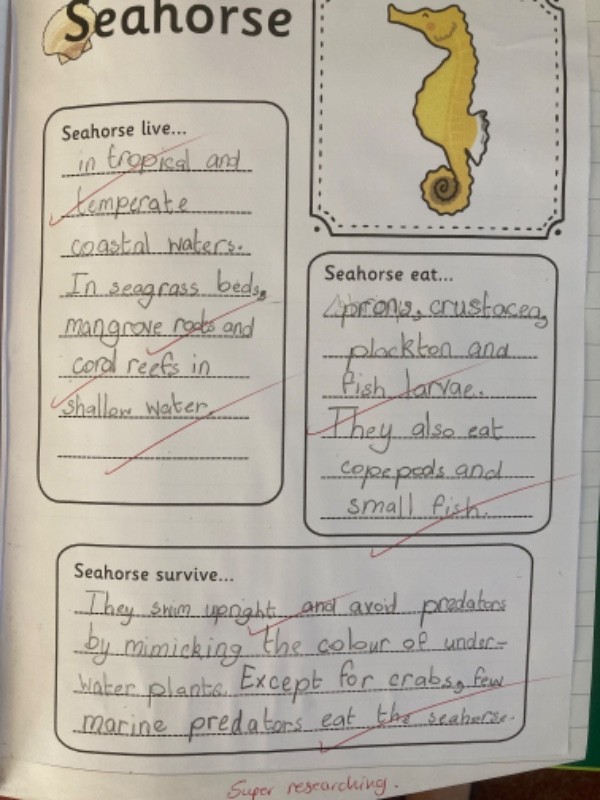 Seahorse
Seahorse live...
in tropical and
temperate
coastal waters.
In seagrass beds,
mangrove roots and
coral reefs in
shallow water.
Seahorse eat...
prons, crustacea,
plackton and
fish larvae.
They also eat
copepods and
small fish.
Seahorse survive...
They swim upright and avoid predators
by mimicking the colour of under-
water plants. Except for crabs, few
marine predators eat the seahorse.
Super researching.